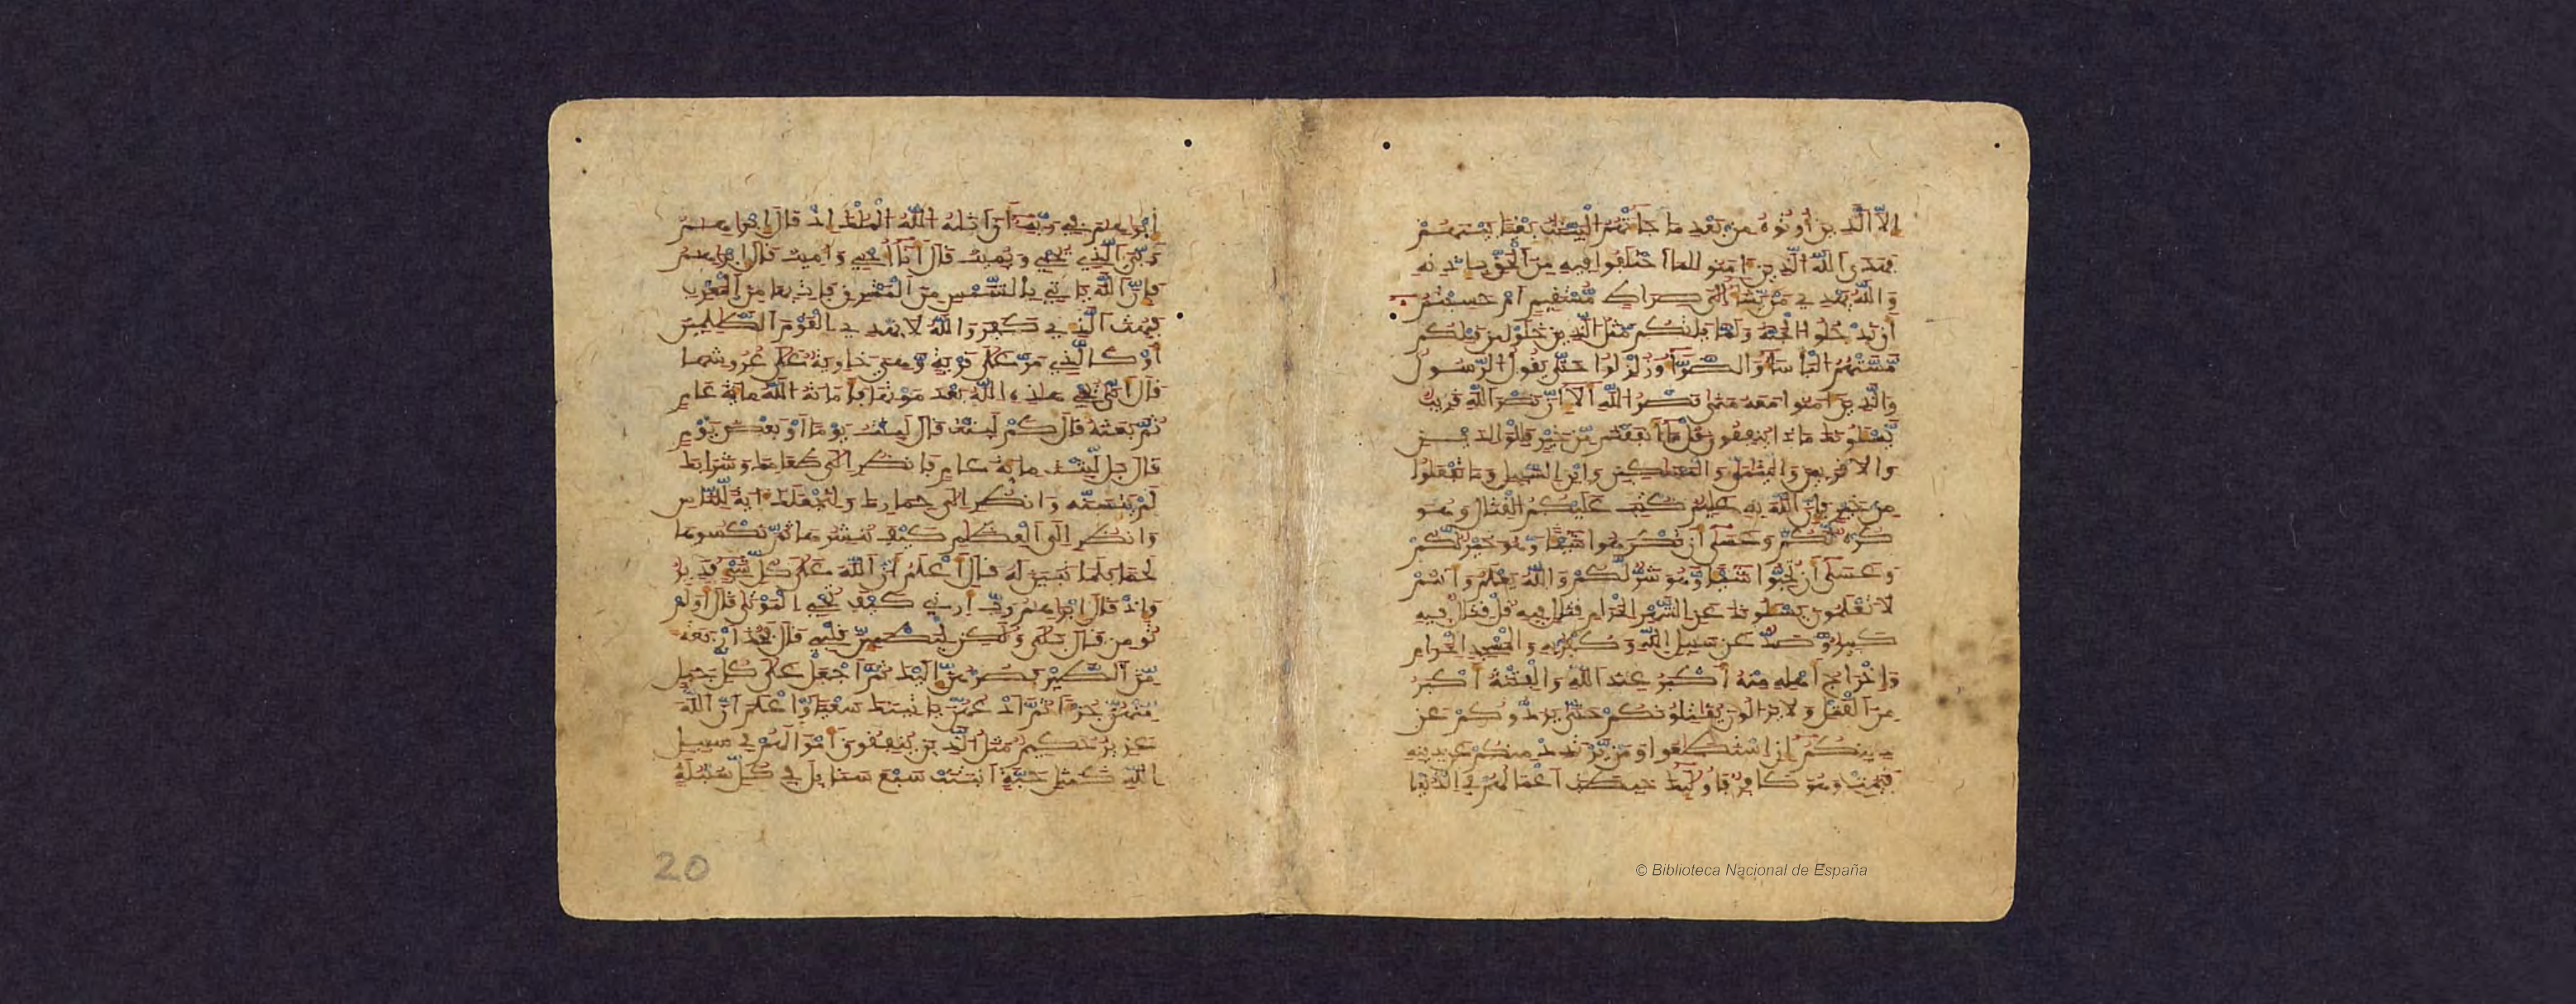 إلا الذين أوتوه من بعد ما جاتهم البينت بغيا بينهم
فهدى الله الذين امنوا لما اختلفوا فيه من الحق بإذنه
والله يهدي من يشا إلى صراط مستقيم أم حسبتم
أن تدخلوا الجنة ولما ياتكم مثل الذين خلوا من قبلكم
مستهم الباسا والضرا وزلزلوا حتى يقول الرسول
والذين امنوا معه متى نصر الله ألا إن نصر الله قريب
يسلونك ماذا ينفقون قل ما أنفقتم من خير فللولدين
والاقربين واليتمى والمسكين وابن السبيل وما تفعلوا
من خير فإن الله به عليم كتب عليكم القتال وهو
كره لكم وعسى أن تكرهوا شيا وهو خير لكم
وعسى أن تحبوا شيا وهو شر لكم والله يعلم وأنتم
لا تعلمون يسلونك عن الشهر الحرام قتال فيه قل قتال فيه
كبير وصد عن سبيل الله وكفر به والمسجد الحرام
وإخراج أهله منه أكبر عند الله والفتنة أكبر
من القتل ولا يزالون يقتلونكم حتى يردوكم عن
دينكم إن استطعوا ومن يرتدد منكم عن دينه
فيمت وهو كافر فأوليك حبطت أعمالهم في الدنيا
إبرهيم في ربه أن اتيه الله الملك إذ قال إبرهيم
ربي الذي يحيي ويميت قال أنا أحيي وأميت قال إبرهيم
فإن الله ياتي بالشمس من المشرق فات بها من المغرب
فبهت الذي كفر والله لا يهدي القوم الظلمين
أو كالذي مر على قرية وهي خاوية على عروشها
قال أنى يحي هذه الله بعد موتها فأماته الله ماية عام
ثم بعثه قال كم لبثت قال لبثت يوما أو بعض يوم
قال بل لبثت ماية عام فانظر إلى طعامك وشرابك
لم يتسنه وانظر إلى حمارك ولنجعلك اية للناس
وانظر إلى العظام كيف ننشرها ثم نكسوها
لحما فلما تبين له قال أعلم أن الله على كل شي قدير
وإذ قال إبرهيم رب أرني كيف تحي الموتى قال أولم
تومن قال بلى ولكن ليطمين قلبي قال فخذ أربعة
من الطير فصرهن إليك ثم اجعل على كل جبل
منهن جزا ثم ادعهن ياتينك سعيا واعلم أن الله
عزيز حكيم مثل الذين ينفقون أموالهم في سبيل
الله كمثل حبة أنبتت سبع سنابل في كل سنبلة
20
© Biblioteca Nacional de España